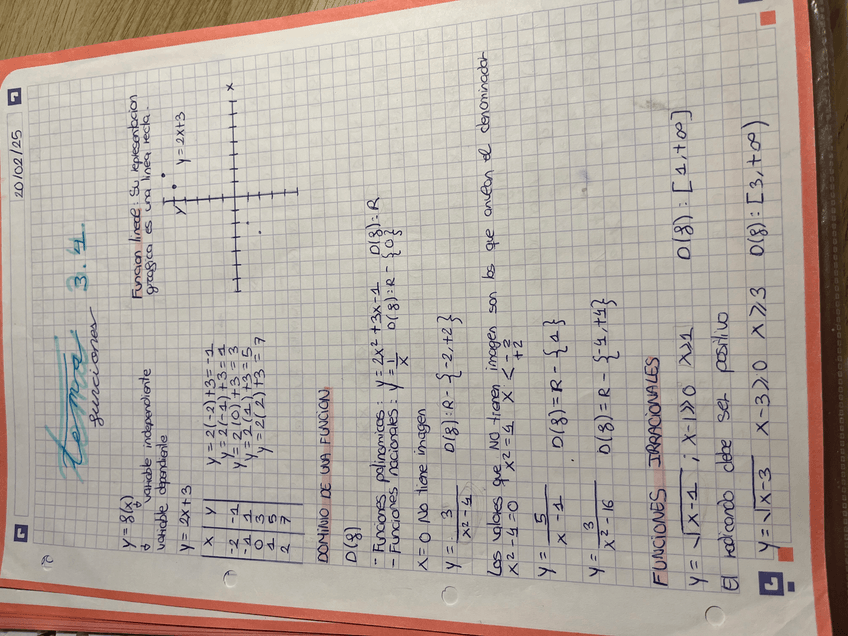 20/02/25
tema 3.4.
funciones
y = f(x)
variable independiente
variable dependiente
Funcion lineal: Su representacion
grafica es una linea recta.
y = 2x+3
x y
-2 -1
-1 1
0 3
1 5
2 7
y = 2(-2)+3 = -1
y = 2(-1)+3 = 1
y = 2(0)+3 = 3
y = 2(1)+3 = 5
y = 2(2)+3 = 7
y
y = 2x+3
x
DOMINIO DE UNA FUNCION.
D(f)
- Funciones polinomicas: y = 2x² + 3x - 1 D(f): R
- Funciones racionales: y = 1/x D(f): R - {0}
x = 0 No tiene imagen
y = 3/(x² - 4) D(f): R - {-2, +2}
Los valores que NO tienen imagen son los que anulan el denominador
x² - 4 = 0 x² = 4 x < -2 +2
y = 5/(x - 1) . D(f) = R - {1}
y = 3/(x² - 16) D(f) = R - {-4, +4}
FUNCIONES IRRACIONALES
y = √(x-1) ; x-1⩾0 x⩾1 D(f): [1, +∞]
El radicando debe ser positivo
y = √(x-3) x-3⩾0 x⩾3 D(f): [3, +∞)